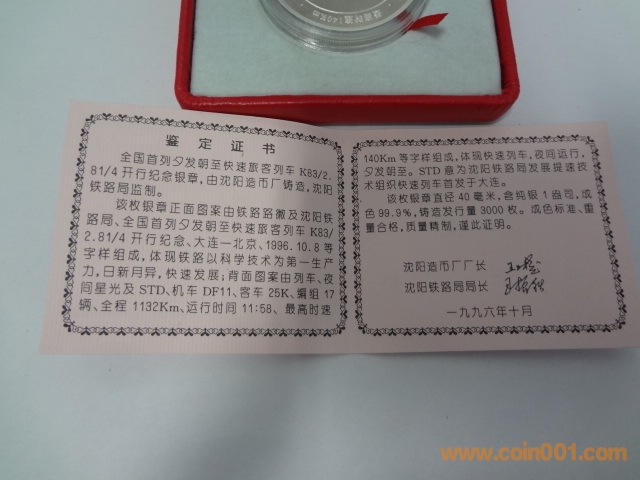 时速140Km
鉴定证书
全国首列夕发朝至快速旅客列车K83/2.
81/4开行纪念银章，由沈阳造币厂铸造，沈阳
铁路局监制。
该枚银章正面图案由铁路路徽及沈阳铁
路局、全国首列夕发朝至快速旅客列车K83/
2.81/4开行纪念、大连—北京、1996.10.8等
字样组成，体现铁路以科学技术为第一生产
力，日新月异，快速发展；背面图案由列车、夜
间星光及STD、机车DF11、客车25K、编组17
辆、全程1132Km、运行时间11:58、最高时速
140Km等字样组成，体现快速列车，夜间运行，
夕发朝至。STD意为沈阳铁路局发展提速技
术组织快速列车首发于大连。
该枚银章直径40毫米，含纯银1盎司，成
色99.9%，铸造发行量3000枚。成色标准、重
量合格，质量精制，谨此证明。
沈阳造币厂厂长
沈阳铁路局局长
一九九六年十月
www.coin001.com